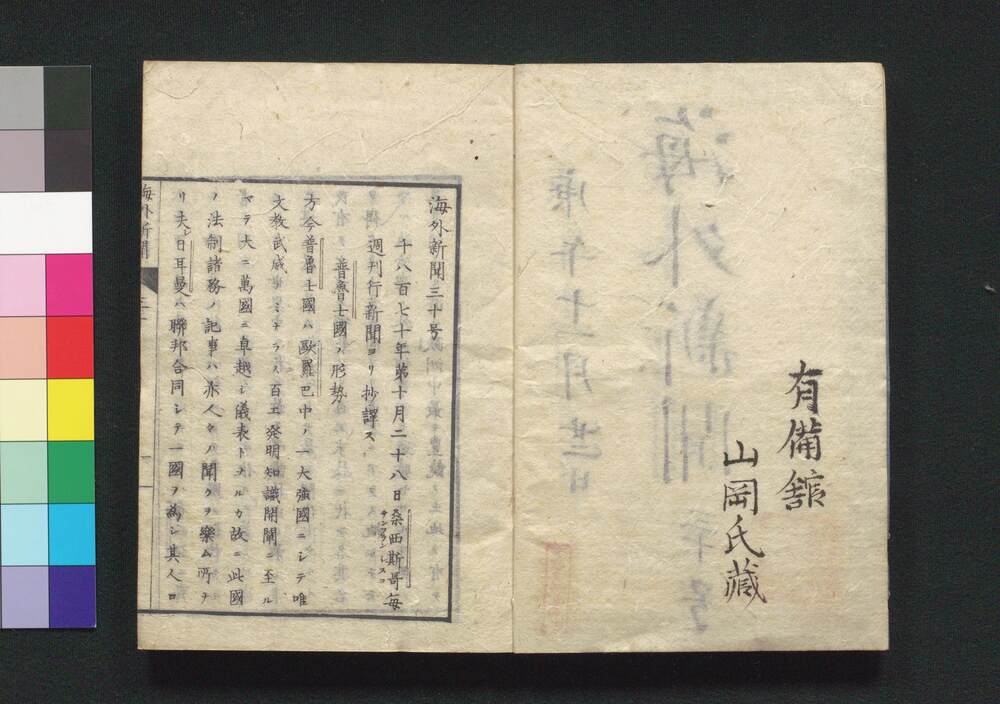 有備舘
山岡氏藏
海外新聞三十号
千八百七十年第十月二十八日桑西斯哥毎
サンフランシスコ
週刊行新聞ヨリ抄譯ス
普魯士國ノ形勢
方今普魯士國ハ歐羅巴中ノ一大強國ニシテ唯
文教武威
ナラス百工発明知識開闡ニ至ル
マテ大ニ萬國ニ卓越シ儀表トナルカ故ニ此國
ノ法制諸務ノ記事ハ亦人々ノ聞クヲ樂ム所ナ
リ夫日耳曼ハ聯邦合同シテ一國ヲ為シ其人口
海外新聞